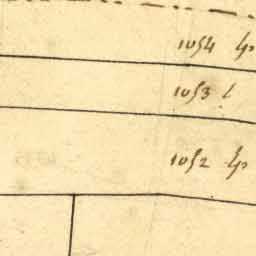 1054
1053
1052